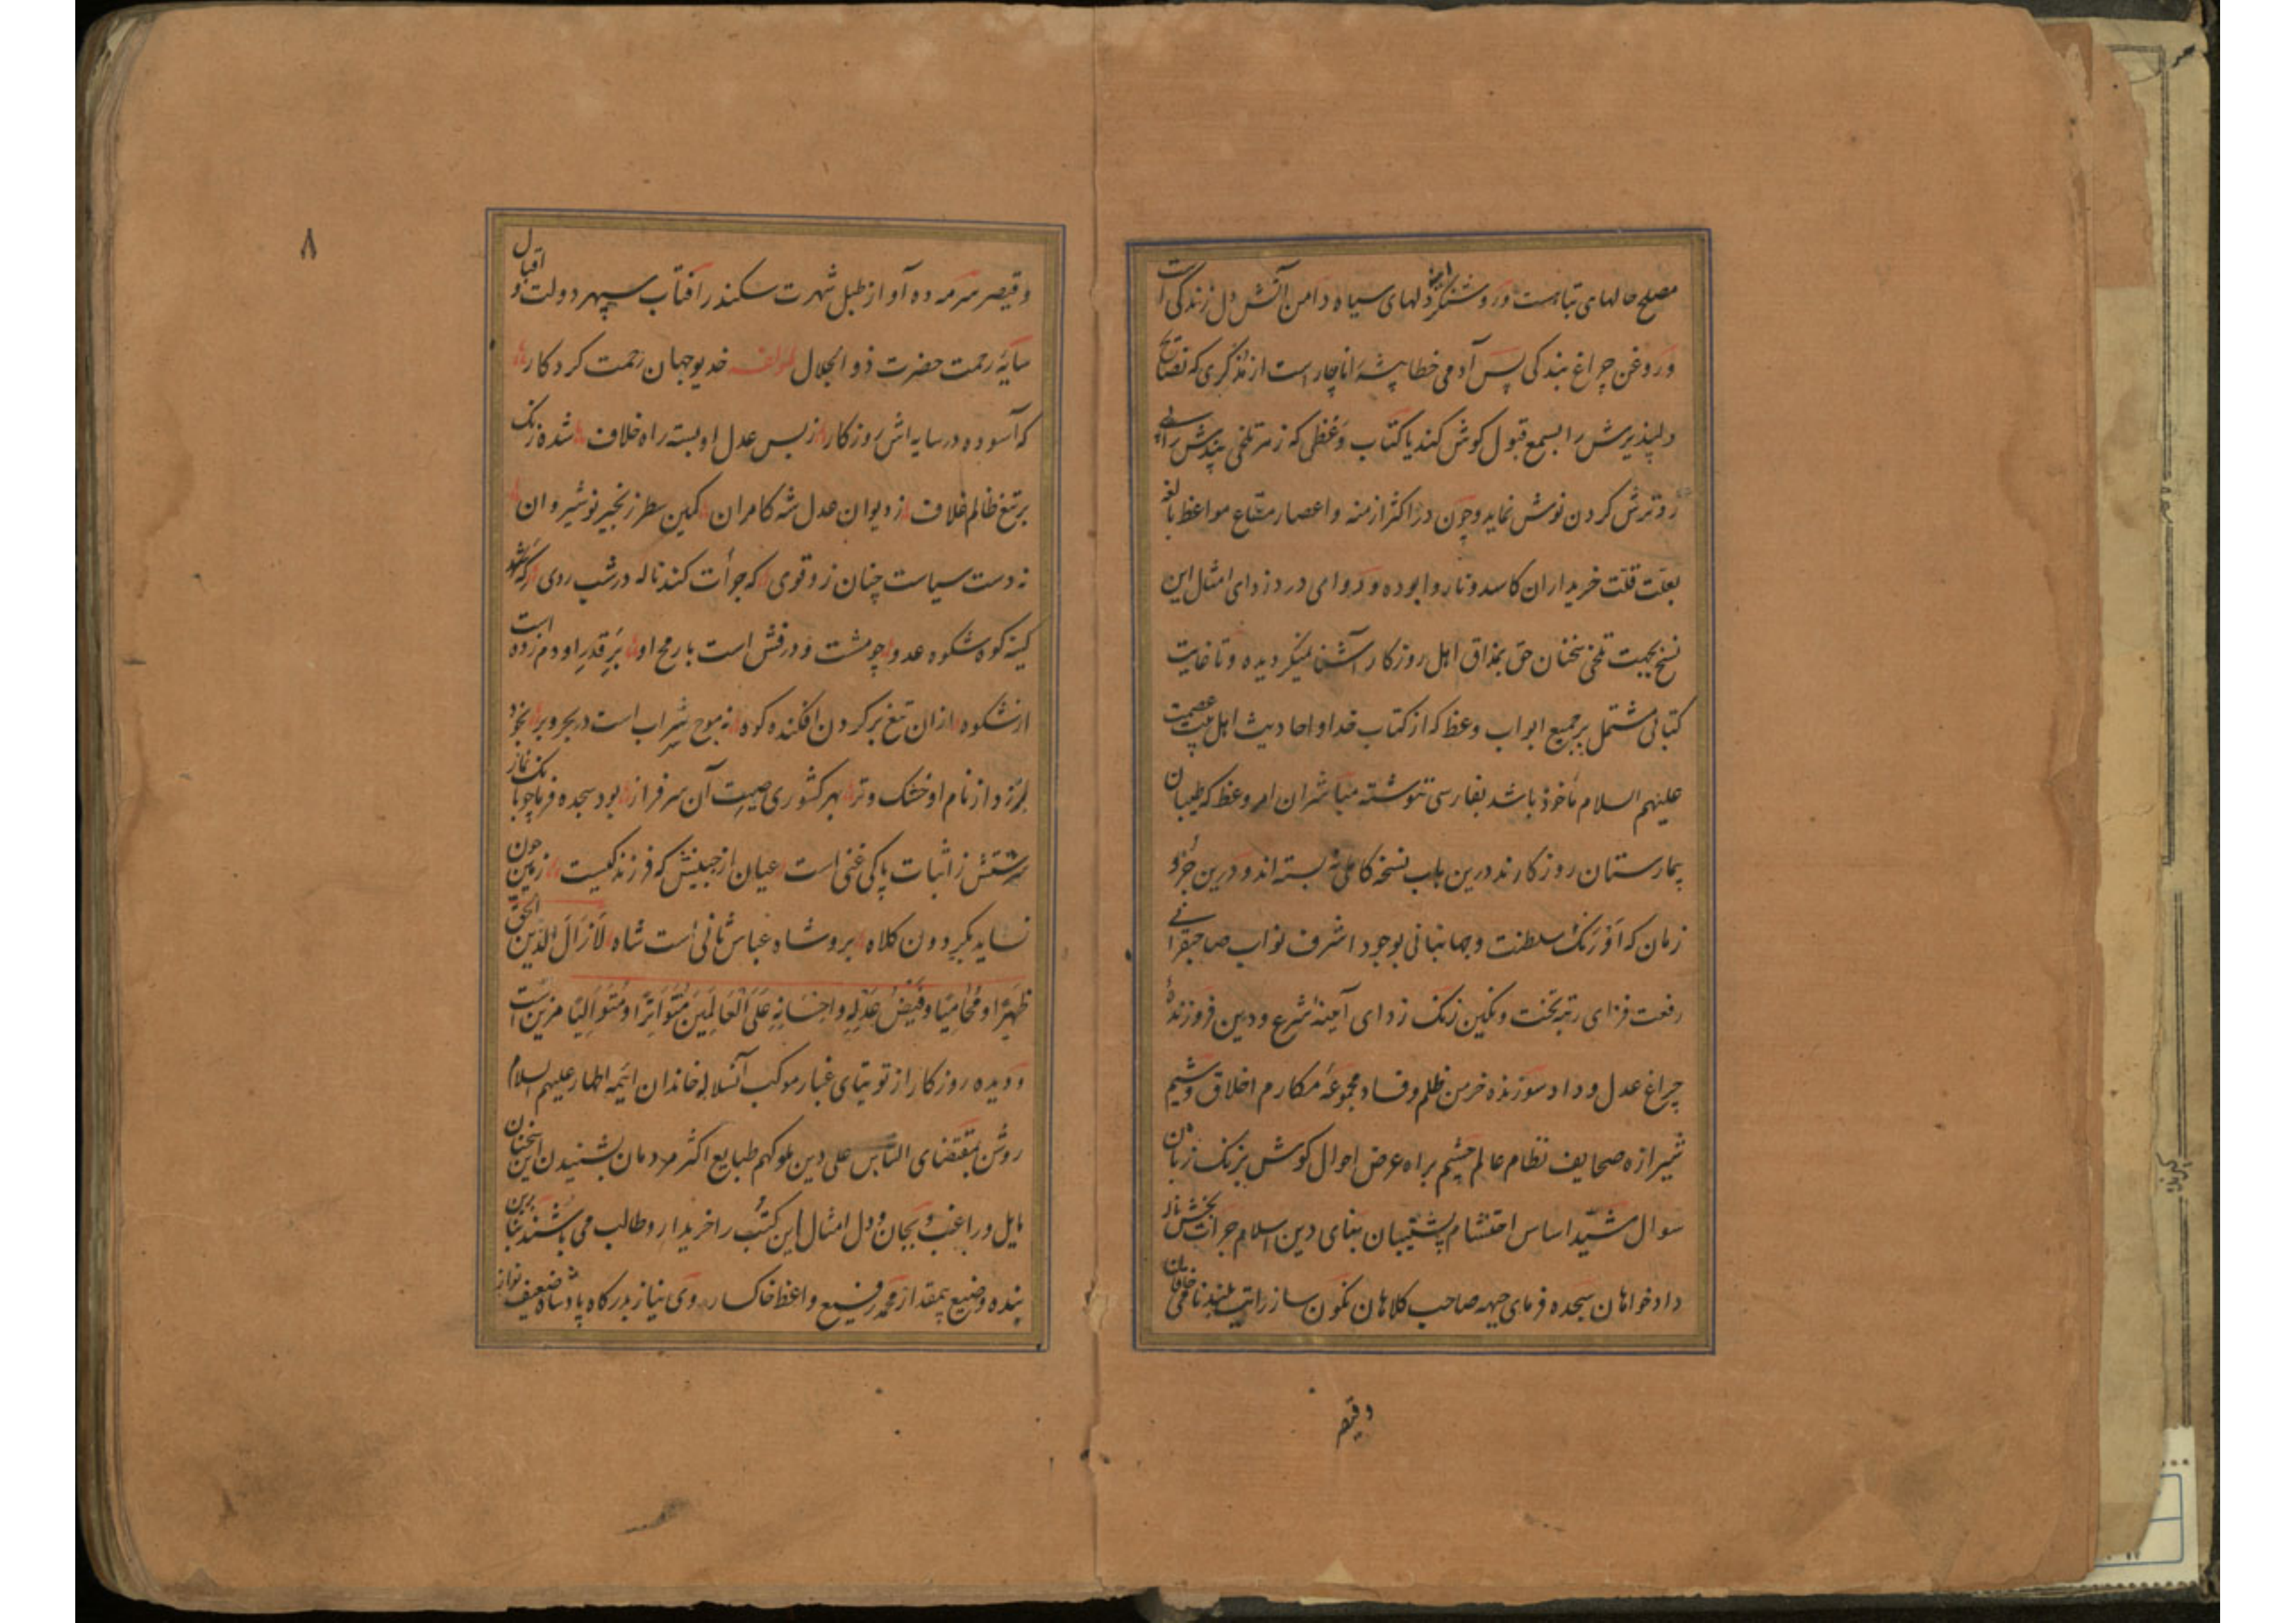 مصلح حالهای تباهست و روشنگر دلهای سیاه دامن آتش دل زندگی است
و روغن چراغ بندگی پس آدمی خطا پیشه را ناچار است از مذکری که نصایح
دلپذیرش را بسمع قبول کوش کند یا کتاب وعظی که زهر تلخی پندش را بی
رو ترش کردن نوش نماید و چون در اکثر ازمنه و اعصار متاع مواعظ بالغه
بعلت قلت خریداران کاسد و ناروا بوده و دوای درد زدای امثال این
نسخ بجهت تلخی سخنان حق بمذاق اهل روزکار آشنا نمیکردیده و تا غایت
کتابی مشتمل بر جمیع ابواب وعظ که از کتاب خدا و احادیث اهل بیت عصمت
علیهم السلام مأخوذ باشد بفارسی ننوشته مباشران امر وعظ که طبیبان
بیمارستان روزکارند درین باب نسخه کاملی نه بسته اند و درین جزو
زمان که اورنک سلطنت و جهانبانی بوجود اشرف نواب صاحبقرانی
رفعت فزای رتبه تخت و نکین زنک زدای آینه شرع و دین فروزنده
چراغ عدل و داد سوزنده خرمن ظلم و فساد مجموعه مکارم اخلاق و شیم
شیرازه صحایف نظام عالم چشم براه عرض احوال کوش بزنک زبان
سوال مشید اساس احتشام پشتیبان بنای دین اسلام جرأت بخش ناله
دادخواهان سجده فرمای جبهه صاحب کلاهان نکون ساز رایت بلند نامی خاقان
و قیصر
و قیصر سرمه ده آواز طبل شهرت سکندر آفتاب سپهر دولت و اقبال
سایه رحمت حضرت ذو الجلال لمؤلفه خدیو جهان رحمت کردکار
که آسوده در سایه اش روزکار ز بس عدل او بسته راه خلاف شده زنک
بر تیغ ظالم غلاف ز دیوان عدل شه کامران کمین سطر زنجیر نوشیروان
نه دست سیاست چنان زو قوی که جرأت کند ناله در شب روی
کوه شکوه عدو چو مشت و درفش است با رمح او بر قدر او دم زده است
از شکوه از ان تیغ بر کردن افکنده کوه نه موج شراب است در بحر و بر بخود
لرزد از نام او خشک و تر بهر کشوری صیت آن سرفراز بود سجده فرما چو بانک نماز
سرشتش ز اثبات پاکی غنی است عیان از جبینش که فرزند کیست زمین چون
نساید بکردون کلاه برو شاه عباس ثانی است شاه لازال لدین الحق
ظهیرا و محامیا و فیض عدله و احسانه علی العالمین متواترا و متوالیا مزین است
و دیده روزکار از توتیای غبار موکب آنسلاله خاندان ایمه اطهار علیهم السلام
روشن بمقتضای الناس علی دین ملوکهم طبایع اکثر مردمان بشنیدن این سخنان
مایل و راغب و بجان و دل امثال این کتب را خریدار و طالب می باشند بنا برین
بنده وضیع بیمقدار محمد رفیع واعظ خاکسار روی نیاز بدرکاه پادشاه ضعیف نواز
۸